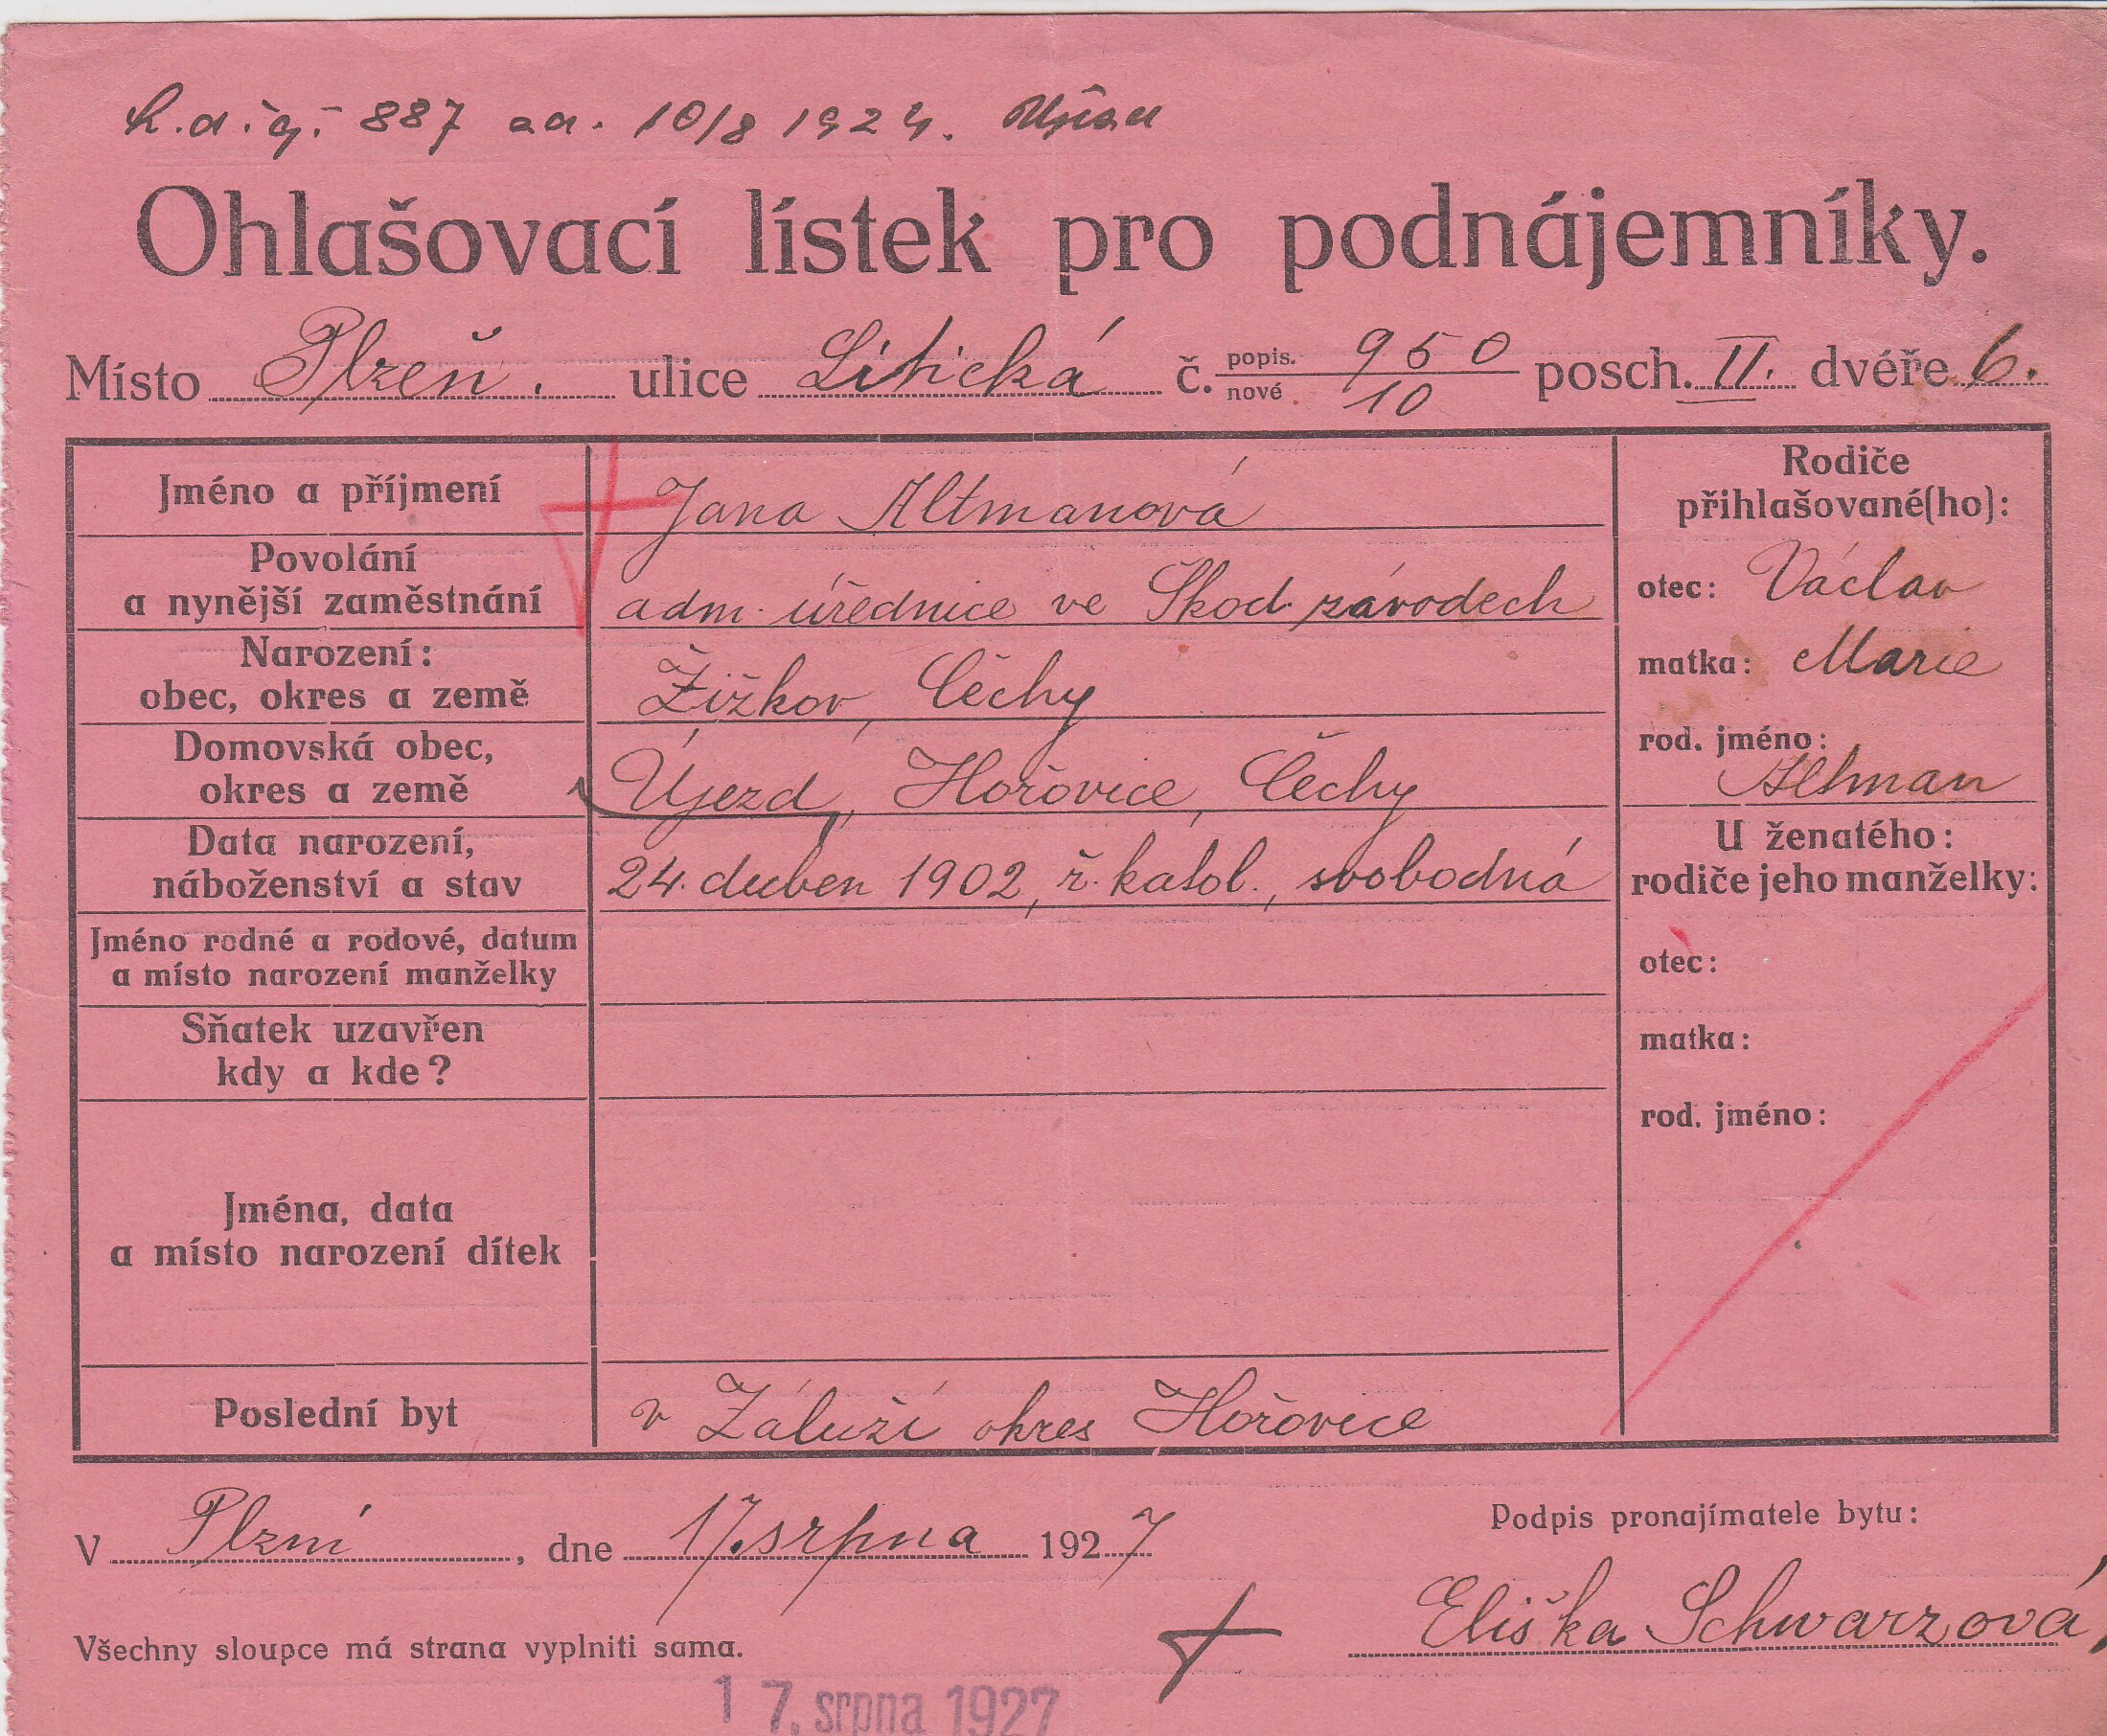 887 10/8 1924. Újezd
Ohlašovací lístek pro podnájemníky.
Místo Plzeň. ulice Litická č. popis. 950 nové 10 posch. II. dvéře 6.
Jméno a příjmení Jana Altmanová
Povolání
a nynější zaměstnání adm. úřednice ve Škod. závodech
Narození:
obec, okres a země Žižkov, Čěchy
Domovská obec,
okres a země Újezd, Hořovice, Čěchy
Data narození,
náboženství a stav 24. duben 1902, ř. katol., svobodná
Jméno rodné a rodové, datum
a místo narození manželky
Sňatek uzavřen
kdy a kde?
Jména, data
a místo narození dítek
Poslední byt v Záluží okres Hořovice
Rodiče
přihlašované(ho):
otec: Václav
matka: Marie
rod. jméno:
Altman
U ženatého:
rodiče jeho manželky:
otec:
matka:
rod. jméno:
V Plzni, dne 17. srpna 1927
Podpis pronajímatele bytu:
Eliška Schwarzová
Všechny sloupce má strana vyplniti sama.
17. srpna 1927